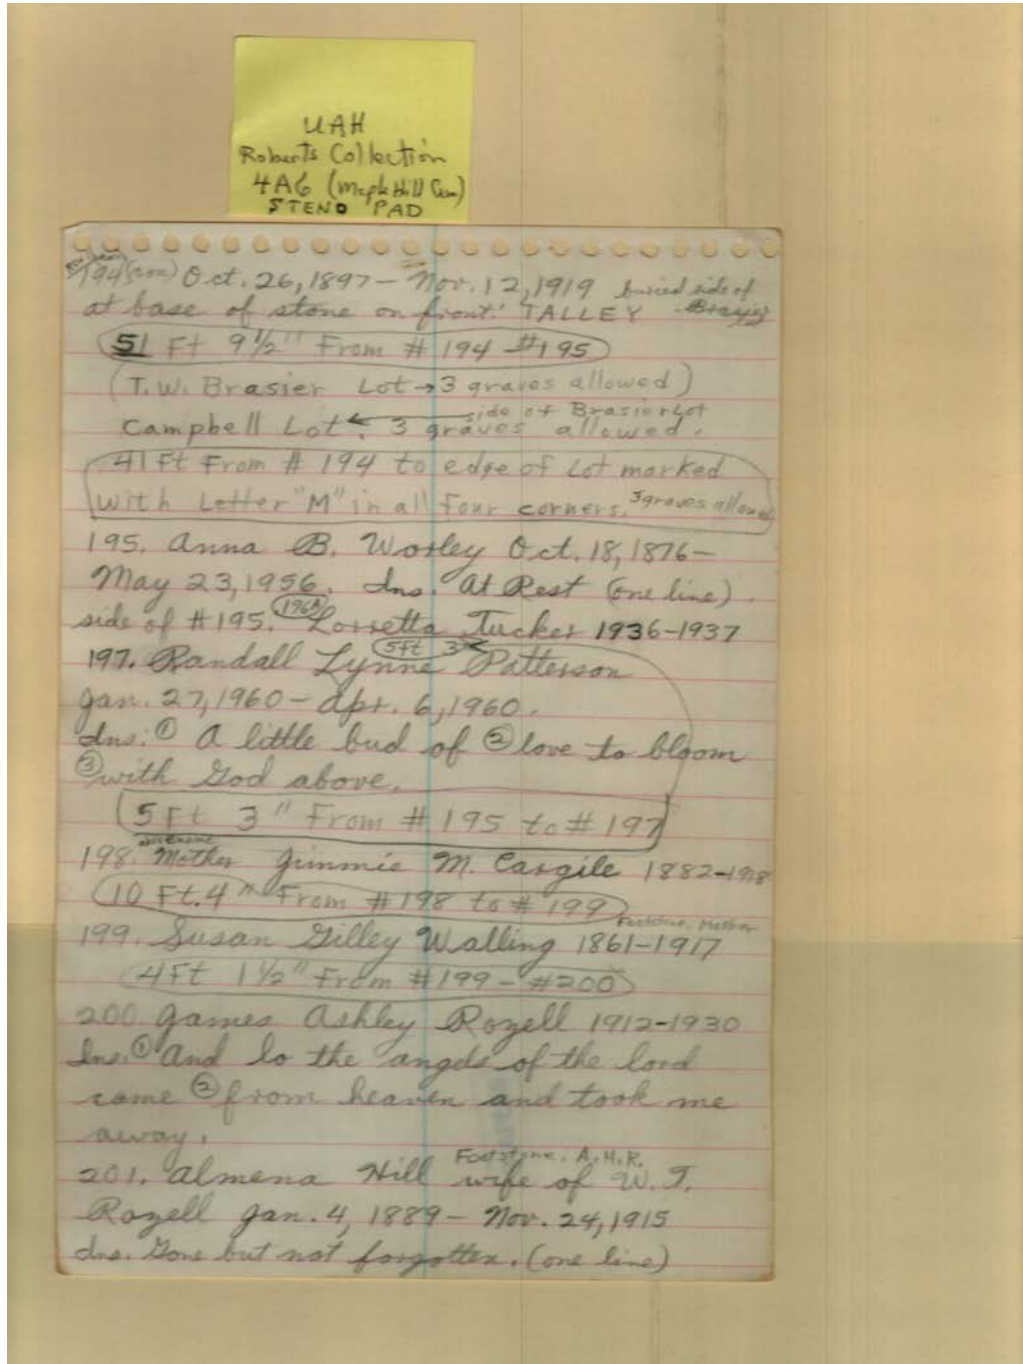 UAH
Roberts Collection
4A6 (Maple Hill Cem)
STENO PAD
194 (con) Oct. 26, 1897 – Nov. 12, 1919 buried side of
at base of stone on front: TALLEY
51 Ft 9½" From # 194 #195
(T.W. Brasier Lot → 3 graves allowed)
side of Brasier Lot
Campbell Lot. 3 graves allowed.
41 Ft From # 194 to edge of Lot marked
With Letter "M" in all four corners. 3 graves allowed
195. Anna B. Worley Oct. 18, 1876 –
May 23, 1956. Ins. At Rest (one line).
side of #195. 196A Lorretta Tucker 1936–1937
5ft 3"
197. Randall Lynne Patterson
Jan. 27, 1960 – Apr. 6, 1960.
Ins: ① A little bud of ② love to bloom
③ with God above.
5 Ft 3" From # 195 to # 197
198. Mother Jimmie M. Cargile 1882–1918
10 Ft. 4" From #198 to # 199
Footstone, Mother
199. Susan Gilley Walling 1861–1917
4 Ft 1½" From #199 – #200
200. James Ashley Rozell 1912–1930
Ins. ① And lo the angels of the lord
came ② from heaven and took me
away.
Footstone, A.H.R.
201. Almena Hill wife of W.T.
Rozell Jan. 4, 1889 – Nov. 24, 1915
Ins. Gone but not forgotten. (one line)